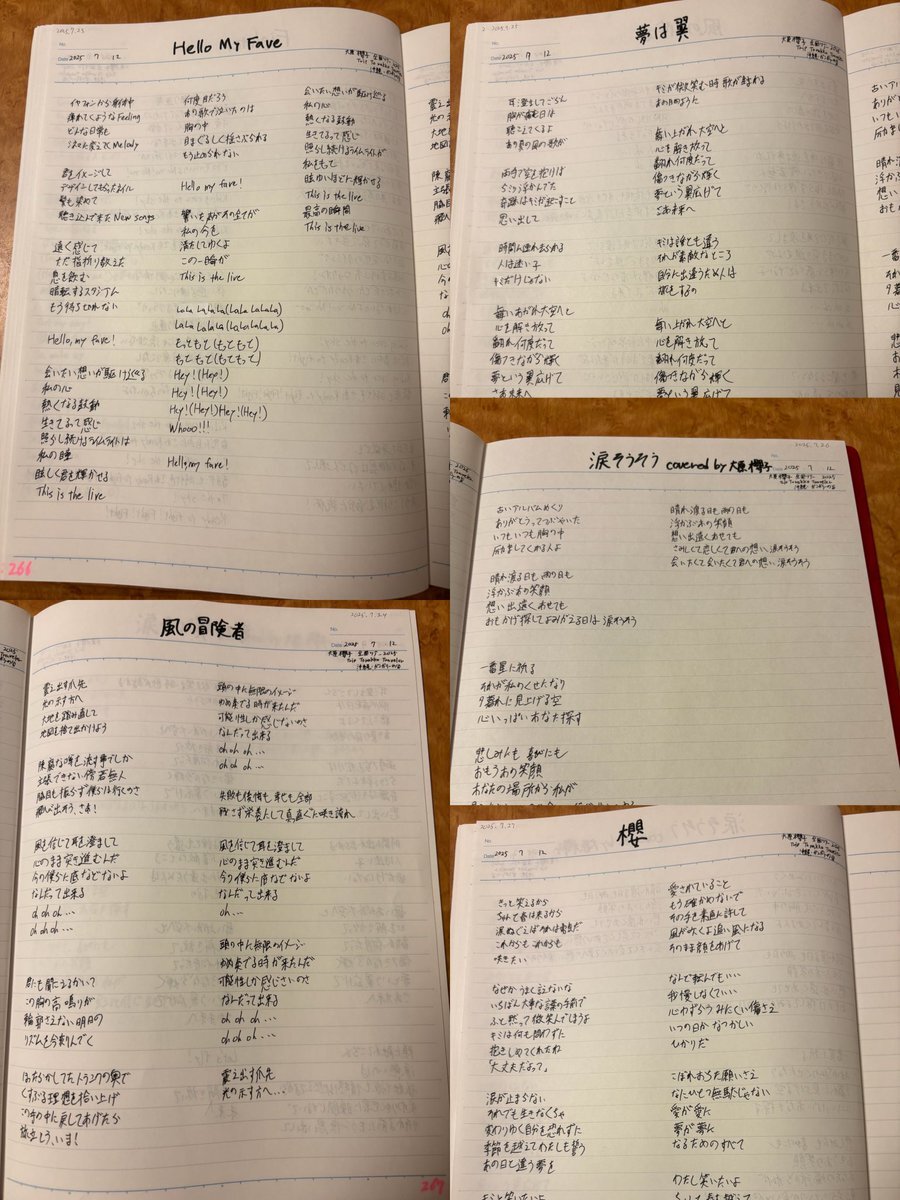 2025.7.25
No.
Hello My Fave
Date 2025 7 12
大原櫻子 全国ツアー 2025
Trip Tourakko Traveler
沖縄 ガンガラーの谷
イヤフォンから刺激中
痺れてくようなFeeling
どんな日常も
決めた変えてくMelody
君をイメージして
デザインしてもらったネイル
髪も染めて
聴き込んで来た New songs
遠く感じて
ただ指折り数えた
息を飲む
暗転するスタジアム
もう待ち切れない
Hello, my fave!
会いたい想いが駆け巡る
私の心
熱くなる鼓動
生きてるって感じ
照らし続けるライムライトは
私の瞳
眩しく君を輝かせる
This is the live
何度目だろう
あの歌で泣いたのは
胸の中
目まぐるしく揺さぶられる
もう止められない
Hello my fave!
響いたあがあの全てが
私の今を
満たしてゆくよ
この一瞬が
This is the live
LaLa LaLaLa(LaLa LaLaLa)
LaLa LaLaLa(LaLaLaLaLa)
もっともっと(もっともっと)
もっともっと(もっともっと)
Hey!(Hey!)
Hey!(Hey!)
Hey!(Hey!)Hey!(Hey!)
Whooo!!!
Hello my fave!
会いたい想いが駆け巡る
私の心
熱くなる鼓動
生きてるって感じ
照らし続けるライムライトが
私をもっと
眩ゆいほどに輝かせる
This is the live
最高の瞬間
This is the live
266
2025.7.25
No.
夢は翼
Date 2025 7 12
大原櫻子 全国ツアー 2025
Trip Tourakko Traveler
沖縄 ガンガラーの谷
耳澄ましてごらん
胸が痛む日は
聴こえてくるよ
あの夏の風の歌が
両手で空を抱けば
ちぎり浮かんでた
奇跡はキミが起こすこと
思い出して
時間に連れ去られる
人は迷い子
キミだけじゃない
舞いあがれ大空へと
心を解き放って
翻れ何度だって
傷つきながら輝く
夢という翼広げて
さあ未来へ
キミが微笑む時 歌が生まれる
あの日のように
舞い上がれ大空へ
心を解き放って
翻れ何度だって
傷つきながら輝く
夢という翼広げて
さあ未来へ
キミは誰とも違う
それが素敵なところ
自分に出逢うため人は
旅をするの
舞い上がれ大空へと
心を解き放って
翻れ何度だって
傷つきながら輝く
夢という翼広げて
2025.7.26
No.
涙そうそう covered by 大原櫻子
Date 2025 7 12
大原櫻子 全国ツアー 2025
Trip Tourakko Traveler
沖縄 ガンガラーの谷
古いアルバムめくり
ありがとうってつぶやいた
いつもいつも胸の中
励ましてくれる人よ
晴れ渡る日も雨の日も
浮かぶあの笑顔
想い出遠くあせても
おもかげ探してよみがえる日は 涙そうそう
一番星に祈る
それが私のくせになり
夕暮れに見上げる空
心いっぱいあなた探す
悲しみにも 喜びにも
おもうあの笑顔
あなたの場所から私が
晴れ渡る日も雨の日も
浮かぶあの笑顔
想い出遠くあせても
さみしくて恋しくて君への想い、涙そうそう
会いたくて会いたくて君への想い 涙そうそう
2025.7.24
No.
風の冒険者
Date 2025 7 12
大原櫻子 全国ツアー 2025
Trip Tourakko Traveler
沖縄 ガンガラーの谷
震え出す爪先
光の示す方へ
大地を踏み直して
地図を捨て出かけよう
陳腐な噂を流す事でしか
主張できない傍若無人
脇目も振らず僕らは行くのさ
飛び出そう、さあ!
風を信じて耳を澄まして
心のまま突き進むんだ
今の僕らに底などないよ
なんだって出来る
oh oh oh…
oh oh oh…
君にも聞こえるかいって
この胸の高鳴りが
輪郭さえない明日の
リズムを今刻んでく
ほったらかしてたトランクの奥で
くすぶる理想を拾い上げ
この手の中に戻してあげたら
旅立とう、いま!
頭の中に無限のイメージ
かき奏でる時が来たんだ
可能性しか感じないのさ
なんだって出来る
oh oh oh…
oh oh oh…
失敗も後悔も 恥も全部
残さず栄養にして真直ぐに咲き誇れ
風を信じて耳を澄まして
心のまま突き進むんだ
今の僕らに底などないよ
なんだって出来る
oh…
頭の中に無限のイメージ
かき奏でる時が来たんだ
可能性しか感じないのさ
なんだって出来る
oh oh oh…
oh oh oh…
震え出す爪先
光の示す方へ…
267
2025.7.27
No.
櫻
Date 2025 7 12
大原櫻子 全国ツアー 2025
Trip Tourakko Traveler
沖縄 ガンガラーの谷
きっと笑えるから
ちゃんと春は来るから
涙ぬぐえばそれは奇跡だ
これからも これからも
咲きたい
なぜかうまく言えないな
いちばん大事な謎の手前で
ふと黙って微笑んでしまうよ
キミは何も問わずに
抱きしめてくれたね
「大丈夫だよって」
涙が止まらない
それでも生きなくちゃ
変わりゆく自分を恐れずに
季節を越えてわたしも誓う
あの日と違う夢を
愛されていること
もう確かめないで
その手を素直に許して
風が吹くよ追い風になる
そのまま顔をあげて
なんで転んでもいい
我慢しなくていい
心わずらうみにくい傷さえ
いつの日かなつかしい
ひかりだ
こぼれおちた願いさえ
なにひとつ無駄じゃない
愛が愛に
夢が夢に
なるためのすべて
わたし笑いたいよ